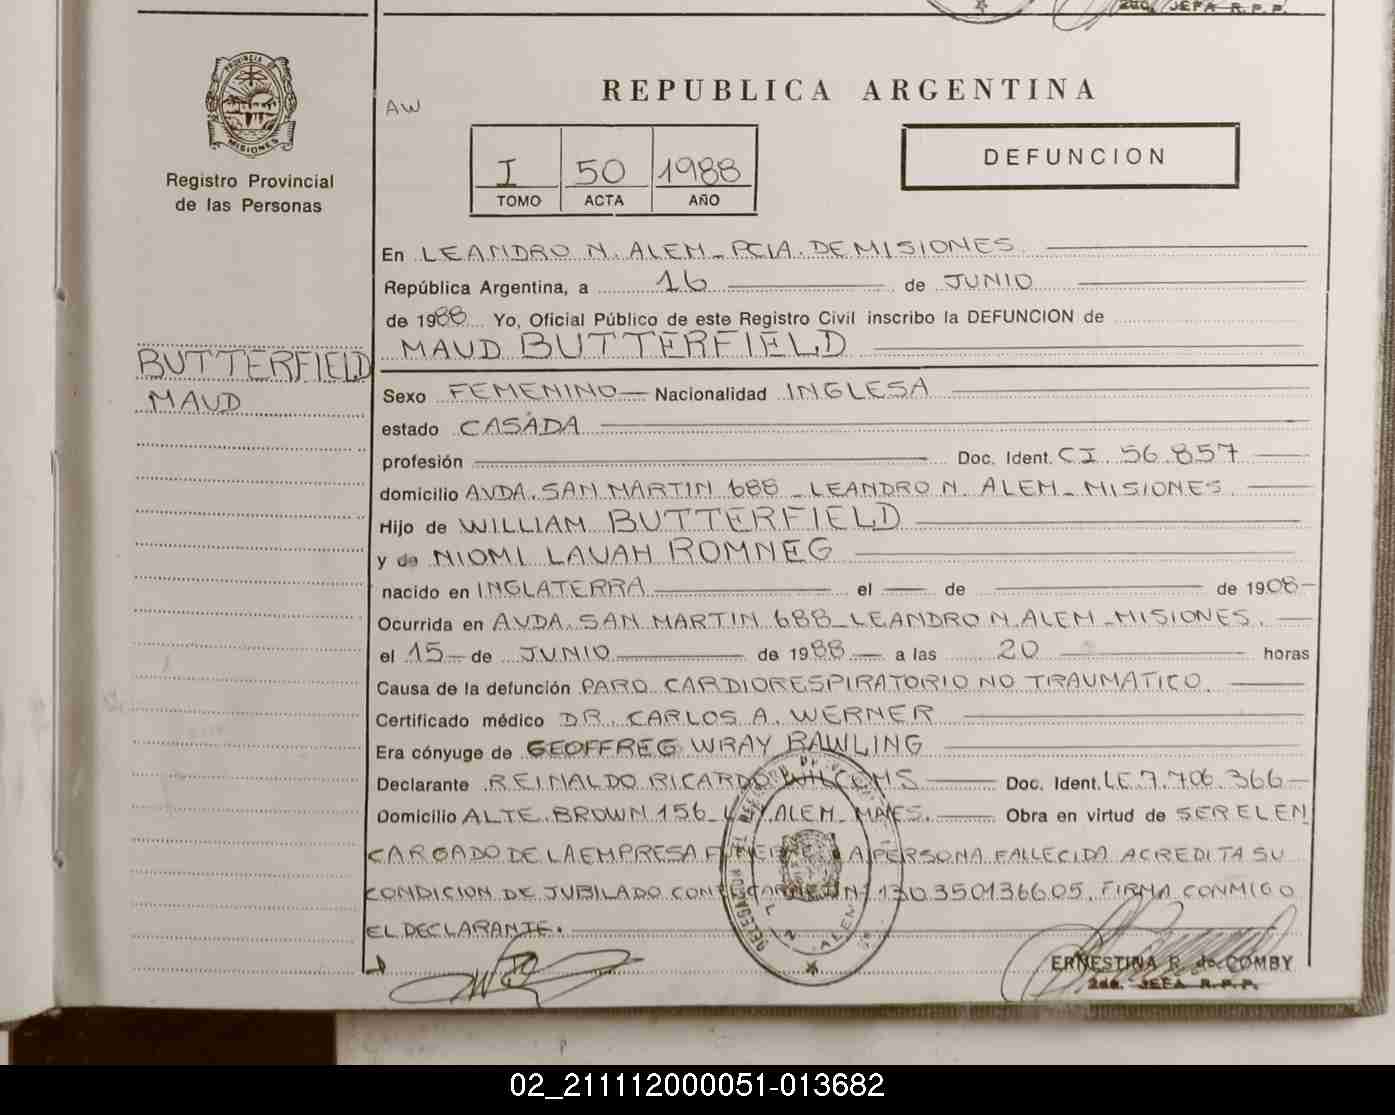 2da. JEFA R.P.P.
PROVINCIA DE
MISIONES
Registro Provincial
de las Personas
AW
REPUBLICA ARGENTINA
I 50 1988
TOMO ACTA AÑO
DEFUNCION
En LEANDRO N. ALEM - PCIA. DE MISIONES
República Argentina, a 16 de JUNIO
de 1988 Yo, Oficial Público de este Registro Civil inscribo la DEFUNCION de
MAUD BUTTERFIELD
BUTTERFIELD
MAUD
Sexo FEMENINO Nacionalidad INGLESA
estado CASADA
profesión Doc. Ident. CI 56.857
domicilio AVDA. SAN MARTIN 688 - LEANDRO N. ALEM - MISIONES
Hijo de WILLIAM BUTTERFIELD
y de NIOMI LAUAH ROMNEG
nacido en INGLATERRA el de de 1908
Ocurrida en AVDA. SAN MARTIN 688 - LEANDRO N. ALEM - MISIONES.
el 15 de JUNIO de 1988 a las 20 horas
Causa de la defunción PARO CARDIORESPIRATORIO NO TRAUMATICO.
Certificado médico DR. CARLOS A. WERNER
Era cónyuge de GEOFFREG WRAY RAWLING
Declarante REINALDO RICARDO Doc. Ident. LE.7.706.366
Domicilio ALTE. BROWN 156 - ALEM - Obra en virtud de SER EL EN
CARGADO DE LA EMPRESA LA PERSONA FALLECIDA ACREDITA SU
CONDICION DE JUBILADO CON 130350136605. FIRMA CONMIGO
EL DECLARANTE.
ERNESTINA R. de COMBY
2da. JEFA R.P.P.
02_211112000051-013682